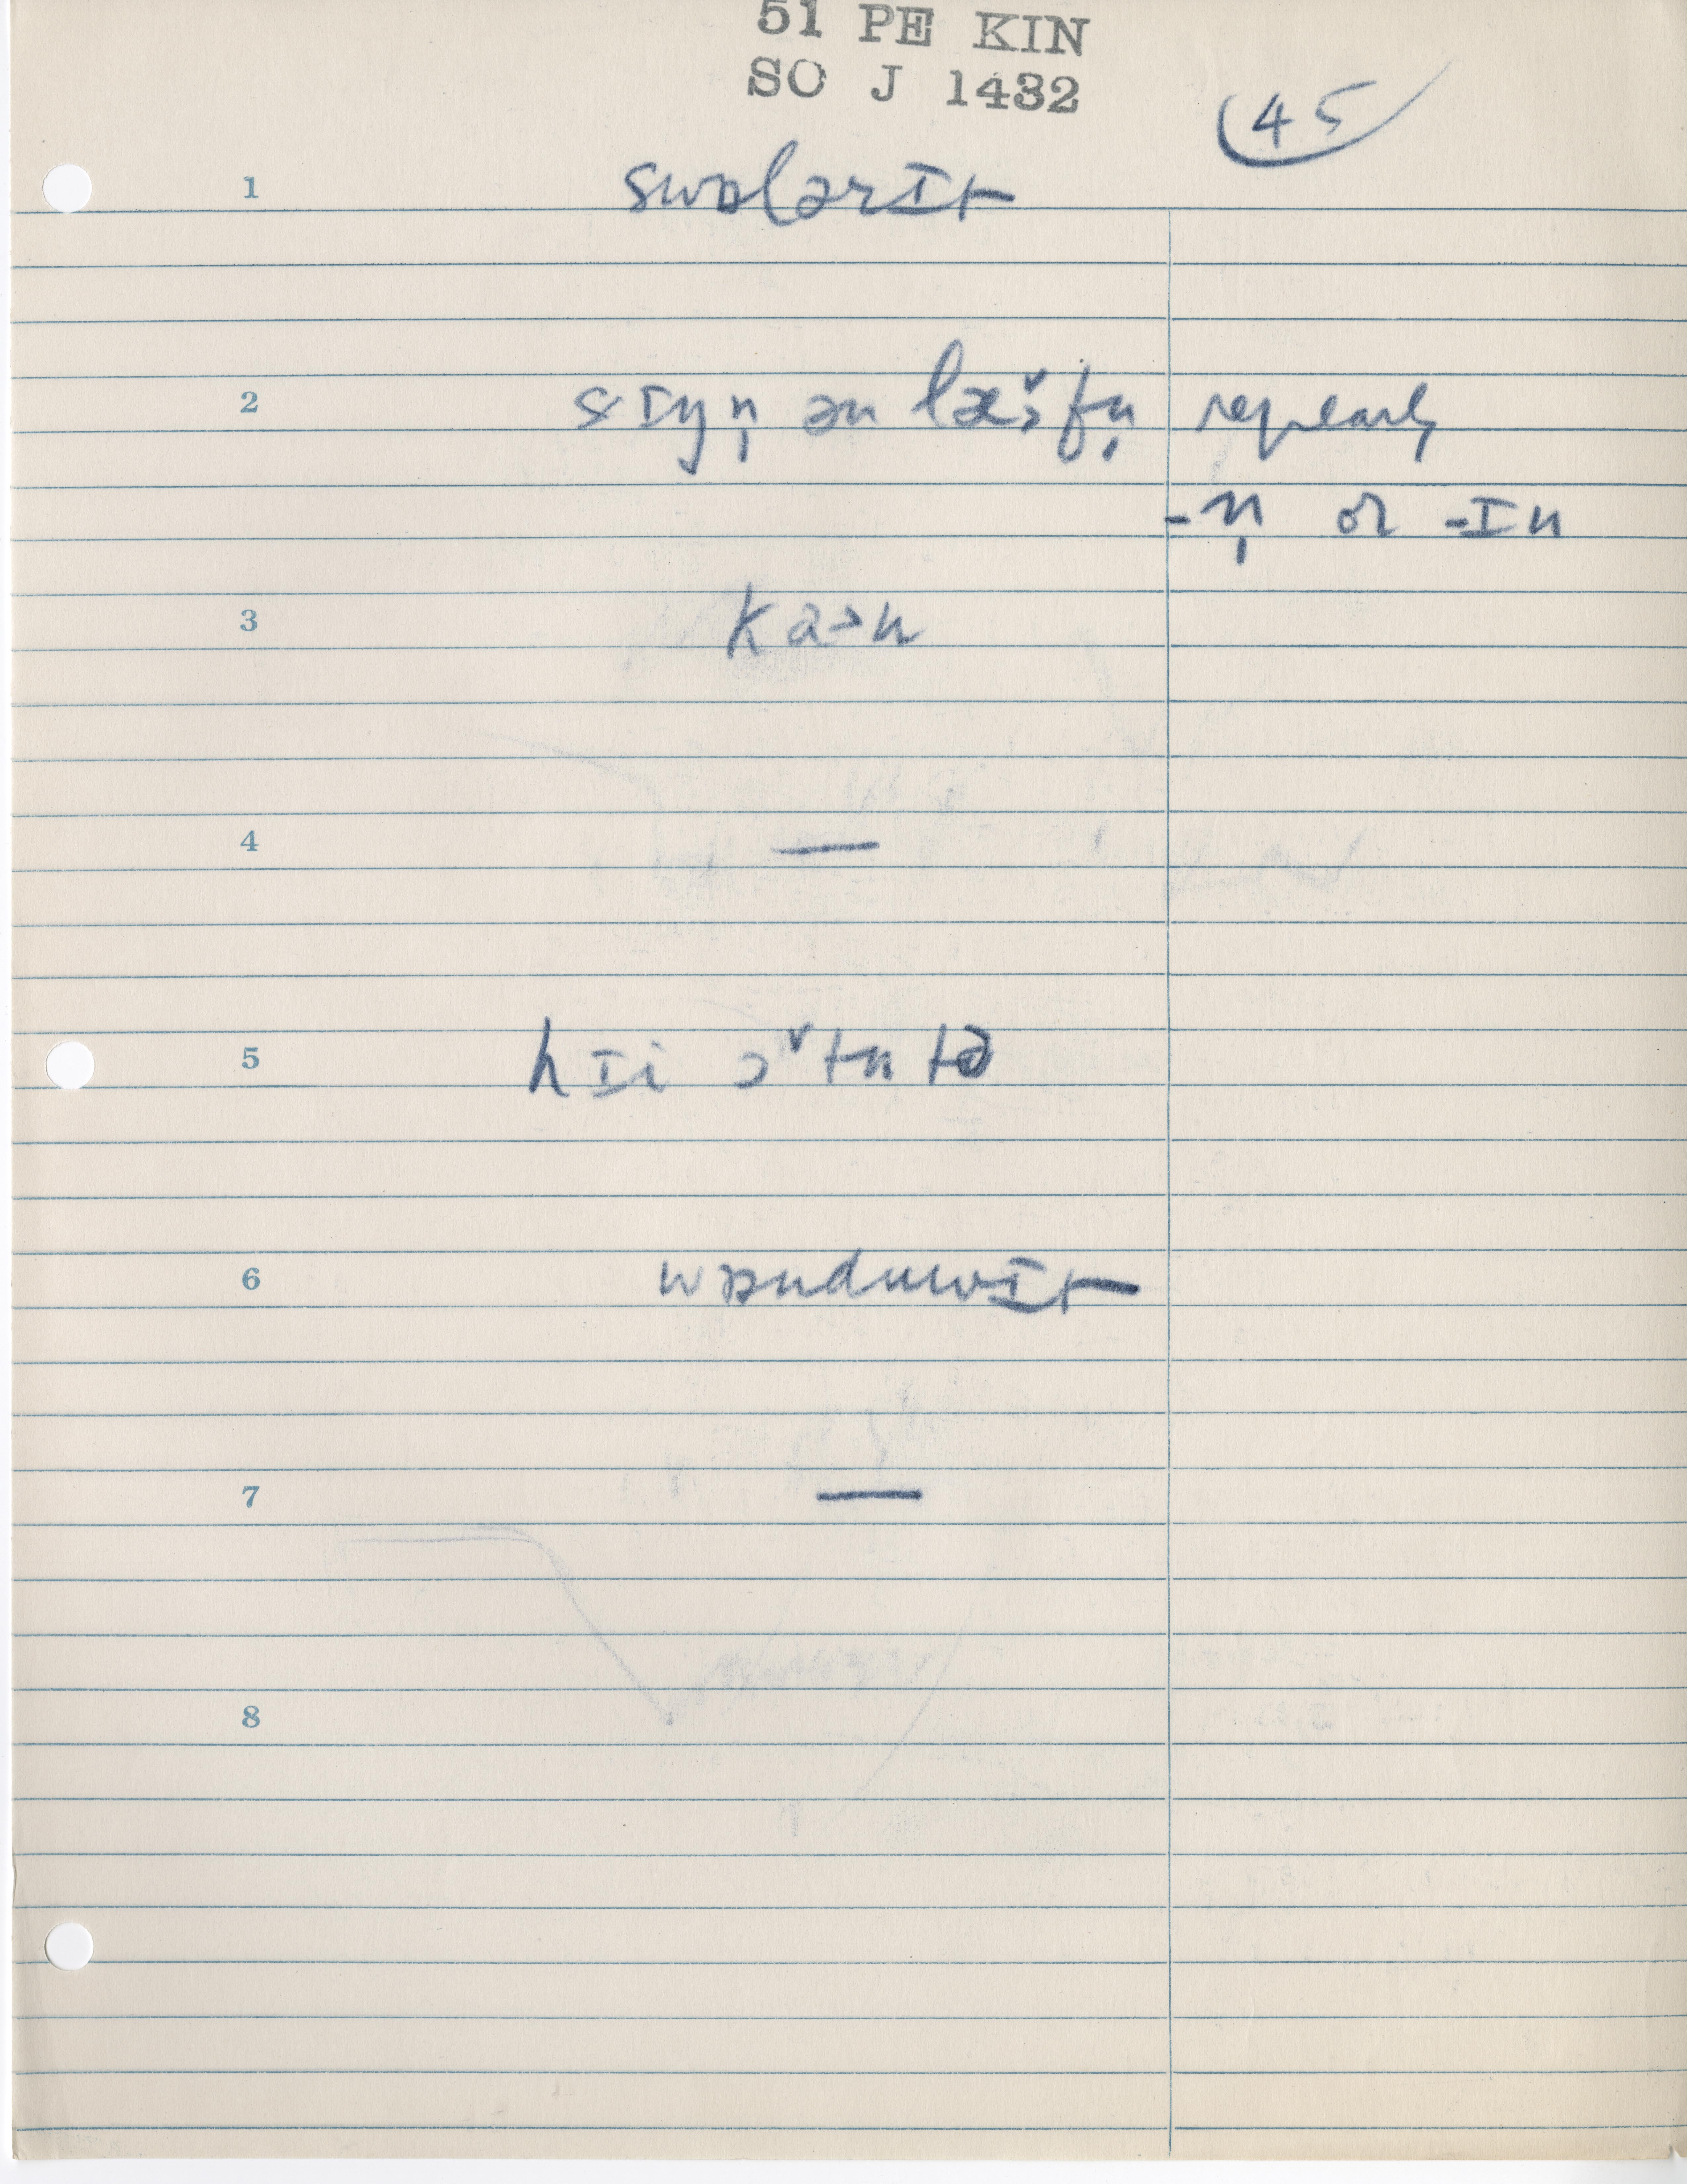 51 PE KIN
SO J 1432
45
1 swɒlərɪt
2 sɪŋn̩ ən læ̌ɔfn̩ repeats
-n̩ or -ɪn
3 kaɔn
4 —
5 hɪi ɔ̌tntə
6 wɒnduwɪt
7 —
8